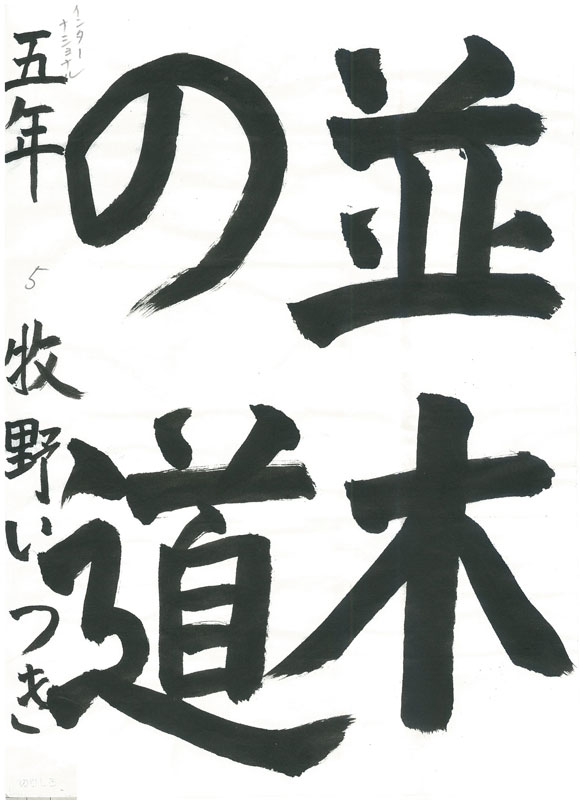 並木
の道
五年 牧野いつき
インター
ナショナル
5